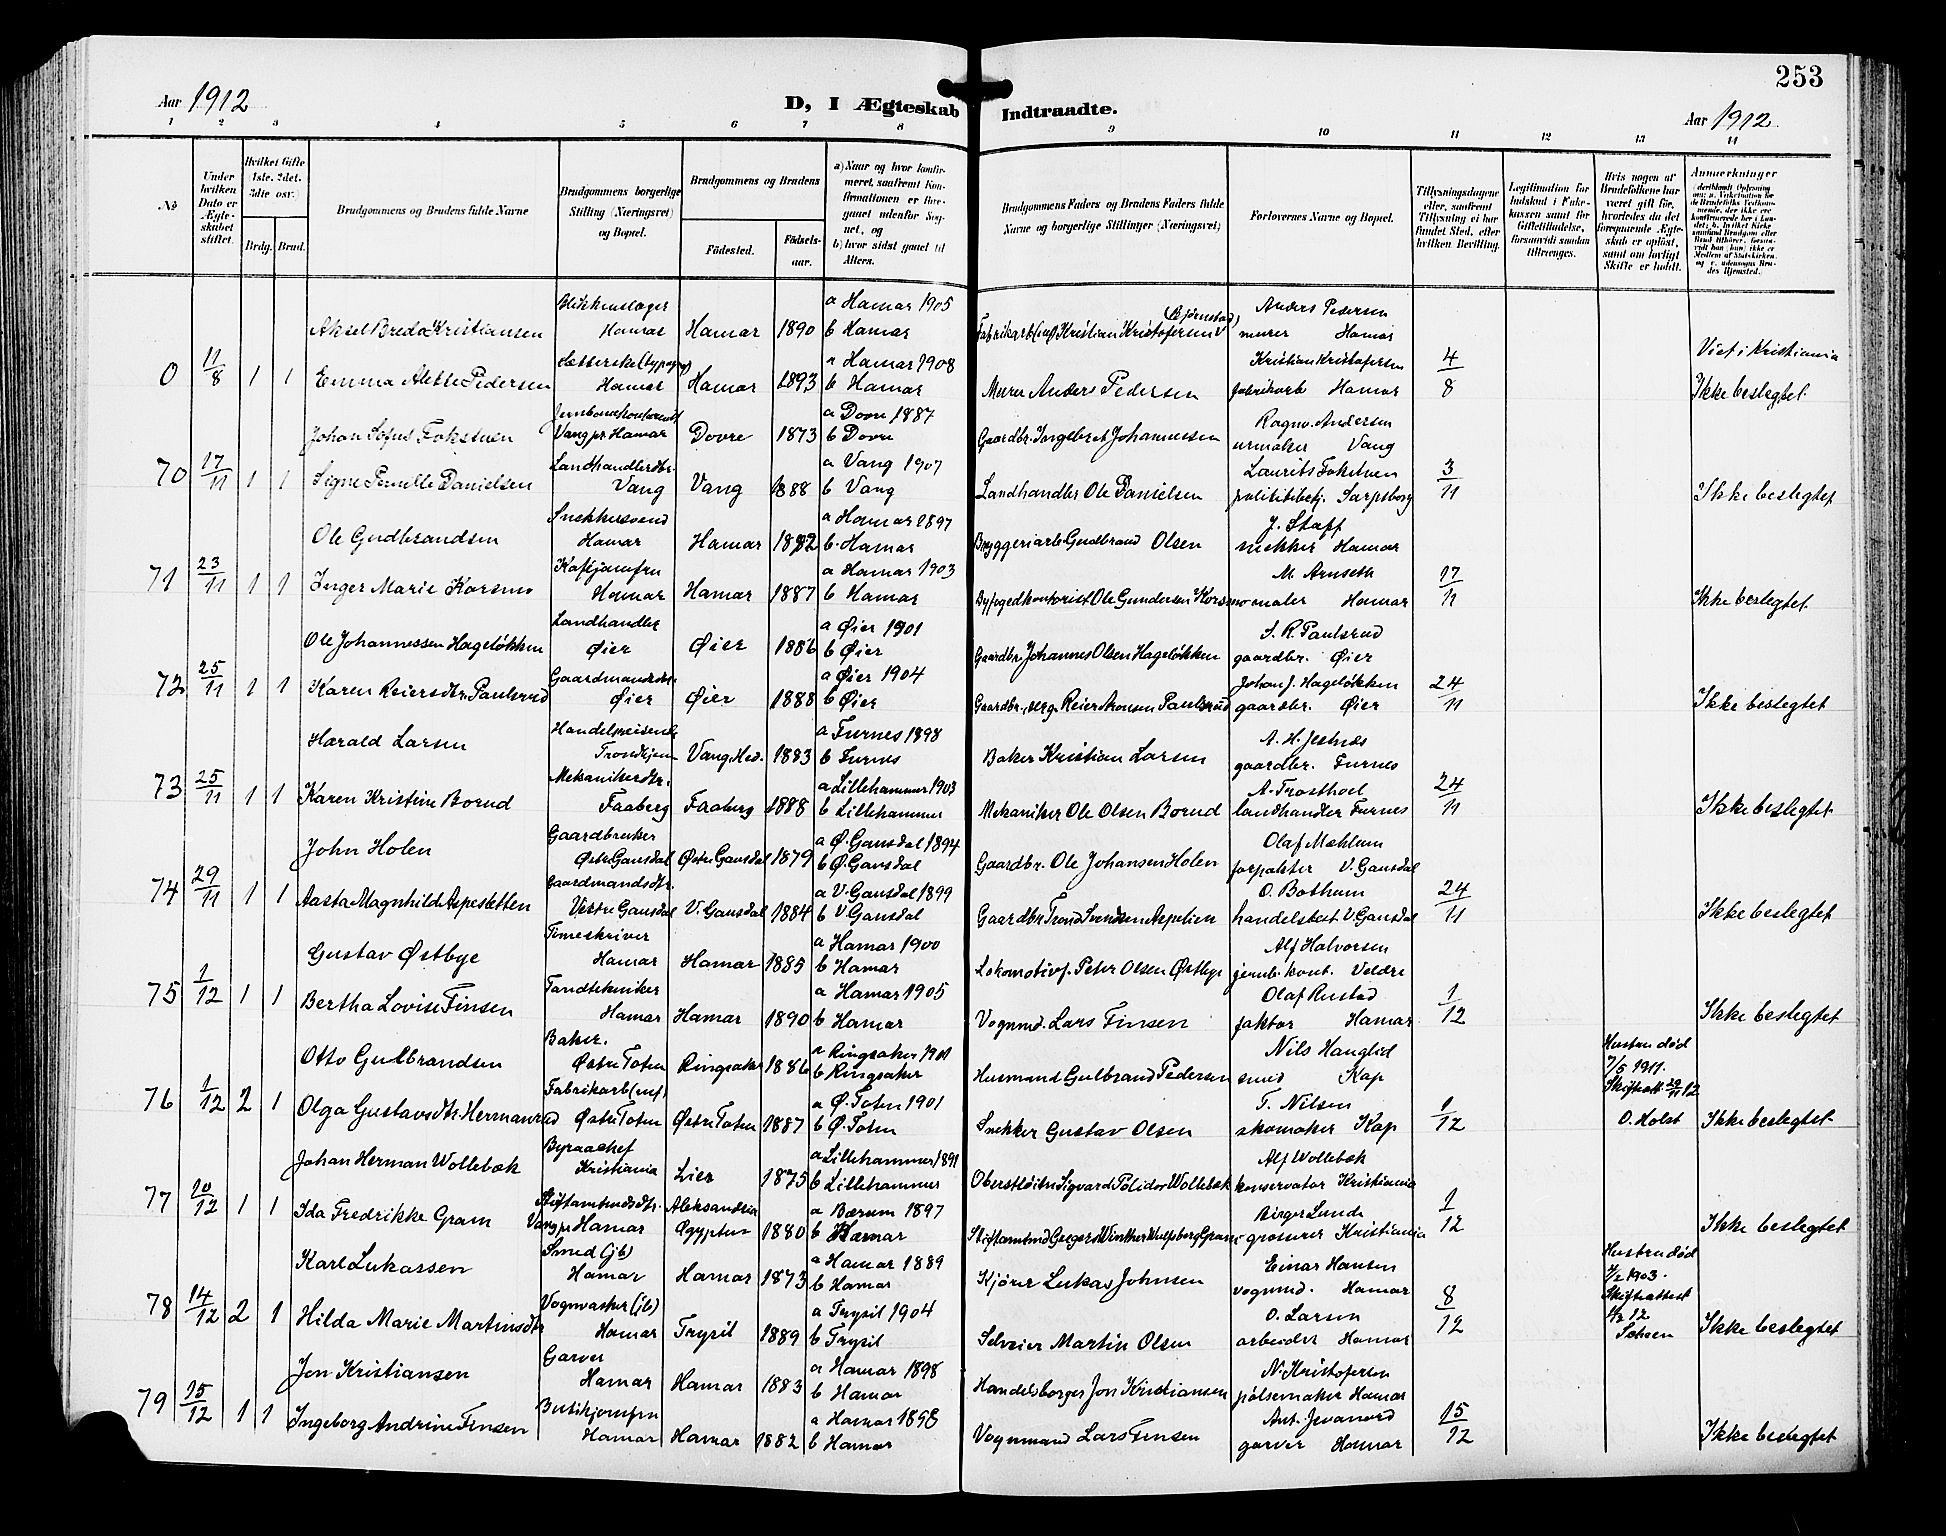 253
Aar 1912
D, I Ægteskab Indtraadte.
Aar 1912
1 2 3 4 5 6 7 8 9 10 11 12 13 14
No
Under hvilken Dato er Ægteskabet stiftet.
Hvilket Gifte 1ste, 2det, 3die osv.
Brdg. Brud.
Brudgommens og Brudens fulde Navne
Brudgommens borgerlige Stilling (Næringsvei) og Bopæl.
Brudgommens og Brudens
Fødested. Fødselsaar.
a) Naar og hvor konfirmeret, saafremt Konfirmationen er foregaaet udenfor Sognet, og
b) hvor sidst gaaet til Alters.
Brudgommens Faders og Brudens Faders fulde Navne og borgerlige Stillinger (Næringsvei)
Forlovernes Navne og Bopæl.
Tillysningsdagene eller, saafremt Tillysning ei har fundet Sted, efter hvilken Bevilling.
Legitimation for Indskud i Enkekassen samt for Giftetilladelse, forsaavidt saadan tiltrænges.
Hvis nogen af Brudefolkene har været gift før, hvorledes da det foregaaende Ægteskab er opløst, samt om lovligt Skifte er holdt.
Anmerkninger
Aksel Breda Kristiansen Blikkenslager Hamar Hamar 1890 a Hamar 1905 b Hamar Fabrikarb (ing) Kristian Kristofersen (Bjørnstad) Anders Pedersen murer Hamar
0 11/8 1 1 Emma Alette Pedersen Sætterske (typogr) Hamar Hamar 1893 a Hamar 1908 b Hamar Murer Anders Pedersen Kristian Kristofersen fabrikarb Hamar 4/8 Viet i Kristiania Ikke beslegtet.
Johan Sofus Fokstuen Jernbanekontorist Vang pr Hamar Dovre 1873 a Dovre 1887 b Dovre Gaardbr. Ingebret Johannessen Ragnv. Andersen urmaker Vang
70 17/11 1 1 Signe Pernille Danielsen Landhandlerdtr. Vang Vang 1888 a Vang 1907 b Vang Landhandler Ole Danielsen Laurits Fokstuen polititibetj. Sarpsborg 3/11 Ikke beslegtet
Ole Gudbrandsen Snekkersvend Hamar Hamar 1882 a Hamar 1897 b. Hamar Bryggeriarb Gudbrand Olsen J. Staff snekker Hamar
71 23/11 1 1 Inger Marie Korsmo Kafejomfru Hamar Hamar 1887 a Hamar 1903 b Hamar Byfogedkontorist Ole Gundersen Korsmo M. Arnseth maler Hamar 17/11 Ikke beslegtet.
Ole Johannessen Hageløkken Landhandler Øier Øier 1886 a Øier 1901 b Øier Gaardbr. Johannes Olsen Hageløkken S. R. Paulsrud gaardbr. Øier
72 25/11 1 1 Karen Reiersdtr. Paulsrud Gaardmandsdtr. Øier Øier 1888 a Øier 1904 b Øier Gaardbr., serg. Reier Aronsen Paulsrud Johan J. Hageløkken gaardbr. Øier 24/11 Ikke beslegtet
Harald Larsen Handelsreisende Trondhjem Vang, Hed. 1883 a Furnes 1898 b Furnes Baker Kristian Larsen A. H. Jesnæs gaardbr. Furnes
73 25/11 1 1 Karen Kristine Borud Mekanikerdtr. Faaberg Faaberg 1888 a Lillehammer 1903 b Lillehammer Mekaniker Ole Olsen Borud A. Trosthoel landhandler Furnes 24/11 Ikke beslegtet
John Holen Gaardbruker Østre Gausdal Østre Gausdal 1879 a Ø. Gausdal 1894 b Ø. Gausdal Gaardbr. Ole Johansen Holen Olaf Mæhlum forpakter V. Gausdal
74 29/11 1 1 Aasta Magnhild Aspesletten Gaardmandsdtr. Vestre Gausdal V. Gausdal 1884 a V. Gausdal 1899 b V Gausdal Gaardbr Trond Svendsen Aspelien O. Botham handelsbest V. Gausdal 24/11 Ikke beslegtet
Gustav Østbye Timeskriver Hamar Hamar 1885 a Hamar 1900 b Hamar Lokomotivf. Peter Olsen Østbye Alf Halvorsen jernb. kont. Veldre
75 1/12 1 1 Bertha Lovise Finsen Tandtekniker Hamar Hamar 1890 a Hamar 1905 b Hamar Vognmd. Lars Finsen Olaf Rustad faktor Hamar 1/12 Ikke beslegtet
Otto Gulbrandsen Baker. Østre Toten Ringsaker 1886 a Ringsaker 1901 b Ringsaker Husmand Gulbrand Pedersen Nils Hauglid smed Kap Hustru død 7/5 1911. Skifteatt. 29/11 12
76 1/12 2 1 Olga Gustavsdtr. Hermanrud Fabrikarb (inf) Østre Toten Østre Toten 1887 a Ø. Toten 1901 b Ø. Toten Snekker Gustav Olsen T. Nilsen skomaker Kap 1/12 O. Holst Ikke beslegtet
Johan Herman Wollebæk Byraachef Kristiania Lier 1875 a Lillehammer 1891 b Lillehammer Oberstløitn Sigvard Polidor Wollebæk Alf Wollebæk konservator Kristiania
77 10/12 1 1 Ida Fredrikke Gram Stiftamtmdsdtr. Vang pr Hamar Aleksandria Ægypten 1880 a Bærum 1897 b Hamar Stiftamtmd Gregers Winther Wulfsberg Gram Birger Lunde grosserer Kristiania 1/12 Ikke beslegtet
Karl Lukassen Smed (jb) Hamar Hamar 1873 a Hamar 1889 b Hamar Kjører Lukas Johnsen Einar Hansen vognmd. Hamar Hustru død 1/2 1903. Skifteattest
78 14/12 2 1 Hilda Marie Martinsdtr Vognvasker (jb) Hamar Trysil 1889 a Trysil 1904 b Trysil Selveier Martin Olsen O. Larsen arbeider Hamar 8/12 12 Ikke beslegtet
Jon Kristiansen Garver Hamar Hamar 1883 a Hamar 1898 b Hamar Handelsborger Jon Kristiansen N. Kristofersen pølsemaker Hamar
79 15/12 1 1 Ingeborg Andrine Finsen Butikjomfru Hamar Hamar 1882 a Hamar 1898 b Hamar Vognmand Lars Finsen Ant. Jevanord garver Hamar 15/12 Ikke beslegtet